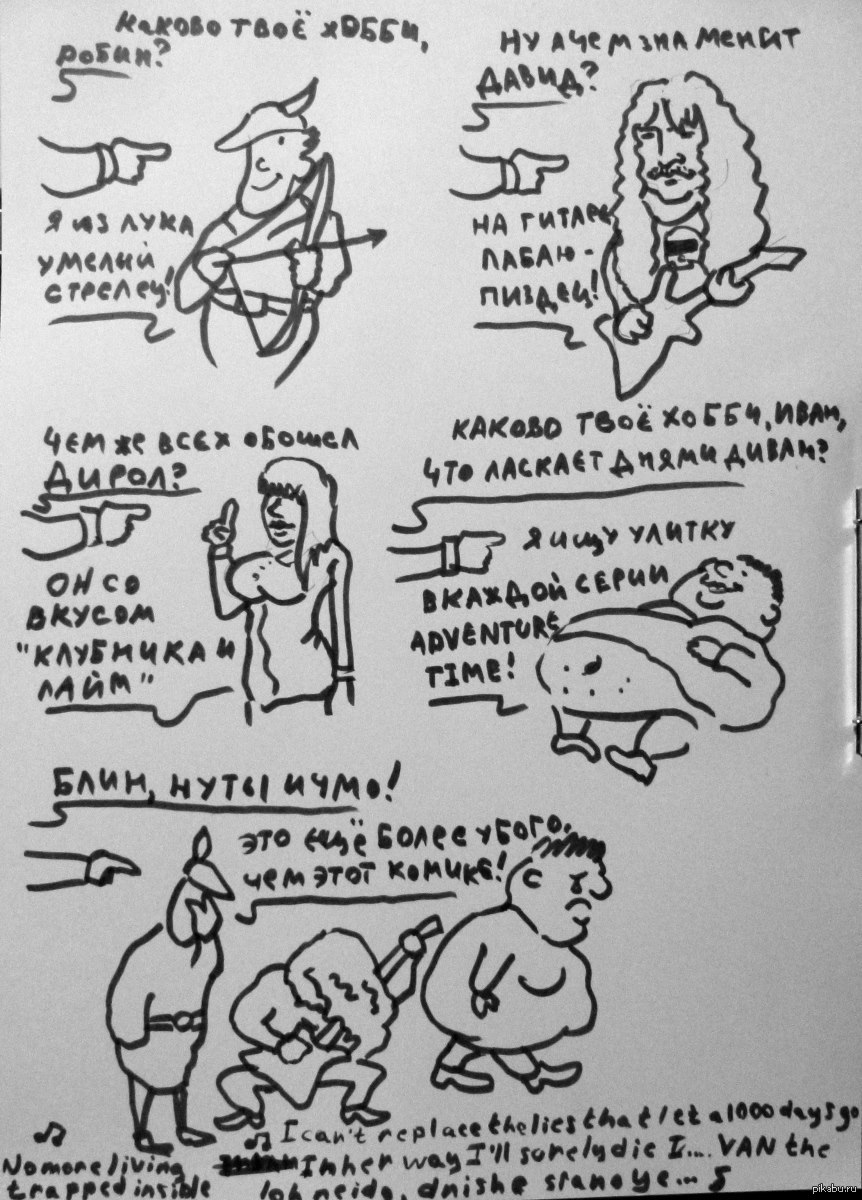 каково твоё хобби,
робин?
я из лука
умелий
стрелец!
ну а чем знаменит
давид?
на гитаре
лабаю -
пиздец!
чем же всех обошел
дирол?
он со
вкусом
"клубника и
лайм"
каково твоё хобби, иван,
что ласкает днями диван?
я ищу улитку
в каждой серии
ADVENTURE
TIME!
блин, ну ты и чмо!
это ещё более убого,
чем этот комикс!
No more living
trapped inside
I can't replace the lies that let a 1000 days go
In her way I'll surely die I.... VAN the
loh neida, dnishe sranoye...
pikabu.ru